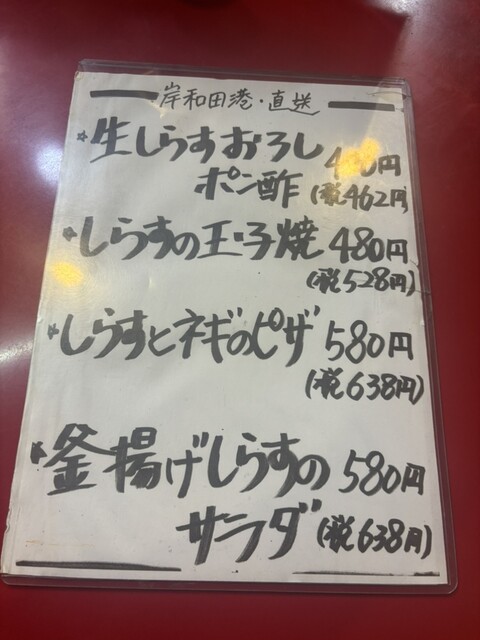 岸和田港・直送
*生しらすおろし
ポン酢 円
(税462円)
*しらすの玉子焼 480円
(税528円)
*しらすとネギのピザ 580円
(税638円)
*釜揚げしらすの 580円
サラダ (税638円)